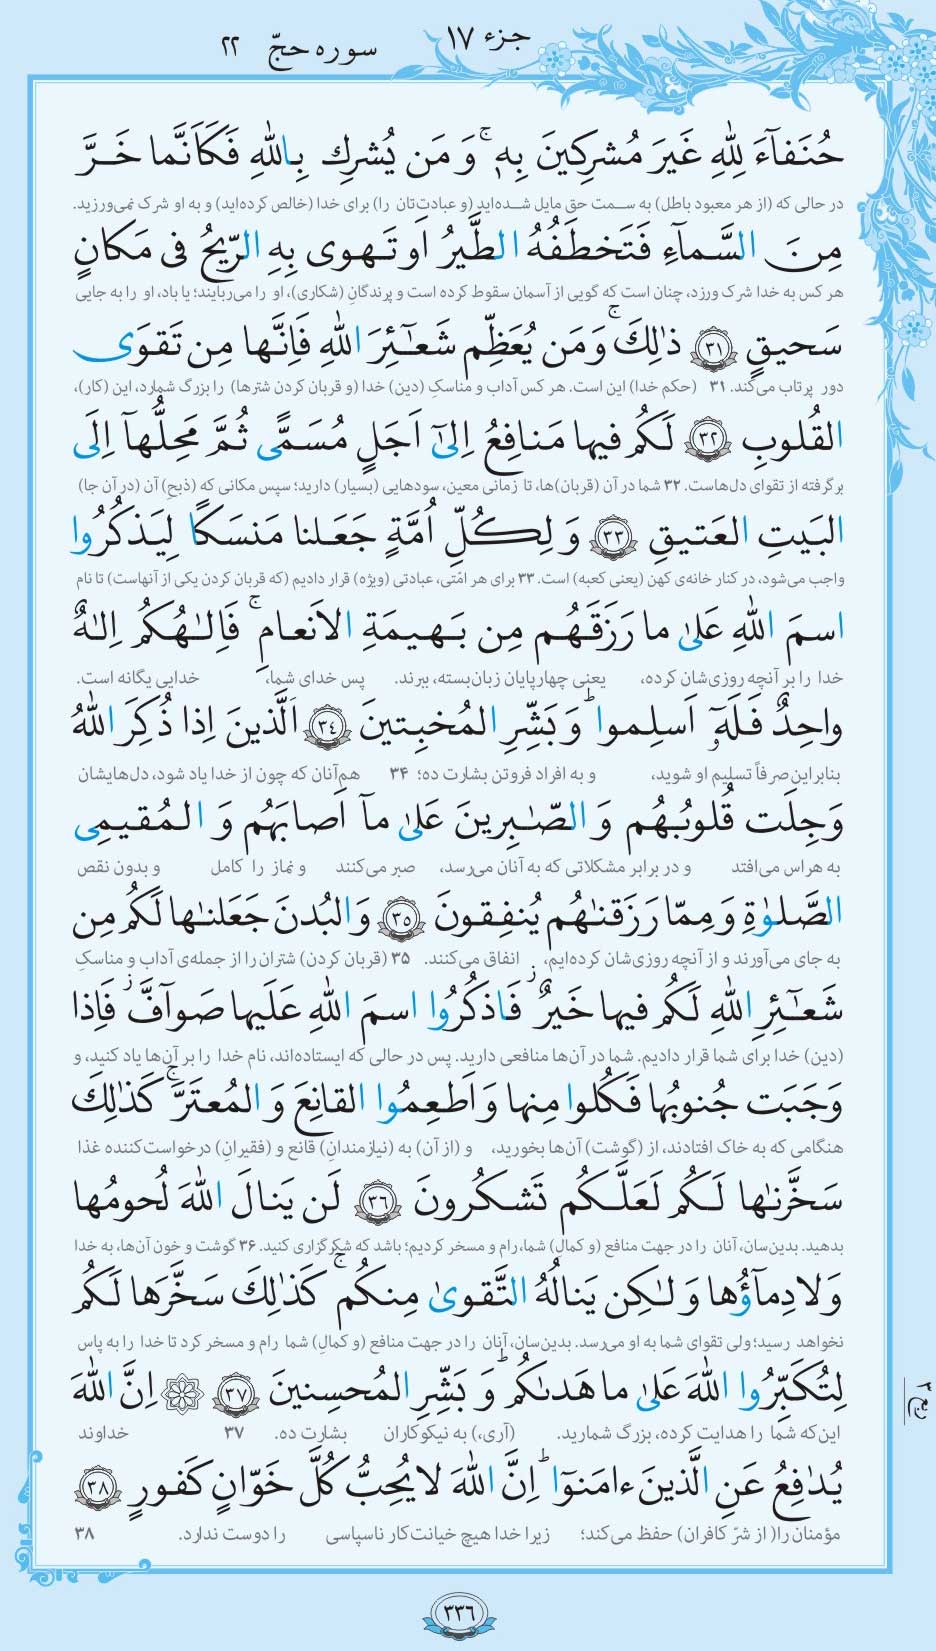 جزء ۱۷
سوره حجّ ۲۲
حُنَفآءَ لِلّٰهِ غَيرَ مُشرِكينَ بِهٖ ۚ وَ مَن يُشرِك بِاللّٰهِ فَكَاَنَّما خَرَّ
در حالی که (از هر معبود باطل) به سمت حق مایل شده‌اید (و عبادت‌تان را) برای خدا (خالص کرده‌اید) و به او شرک نمی‌ورزید.
مِنَ السَّمآءِ فَتَخطَفُهُ الطَّيرُ اَو تَهوى بِهِ الرّيحُ فى مَكانٍ
هر کس به خدا شرک ورزد، چنان است که گویی از آسمان سقوط کرده است و پرندگانِ (شکاری)، او را می‌ربایند؛ یا باد، او را به جایی
سَحيقٍ ﴿٣١﴾ ذٰلِكَ ۚ وَ مَن يُعَظِّم شَعٰٓئِرَ اللّٰهِ فَاِنَّها مِن تَقوَى
دور پرتاب می‌کند. ۳۱ (حکم خدا) این است. هر کس آداب و مناسکِ (دین) خدا (و قربان کردن شترها) را بزرگ شمارد، این (کار)،
القُلوبِ ﴿٣٢﴾ لَكُم فيها مَنافِعُ اِلىٰٓ اَجَلٍ مُسَمًّى ثُمَّ مَحِلُّهآ اِلَى
برگرفته از تقوای دل‌هاست. ۳۲ شما در آن (قربان)ها، تا زمانی معین، سودهایی (بسیار) دارید؛ سپس مکانی که (ذبحِ) آن (در آن جا)
البَيتِ العَتيقِ ﴿٣٣﴾ وَ لِكُلِّ اُمَّةٍ جَعَلنا مَنسَكًا لِيَذكُرُوا
واجب می‌شود، در کنار خانه‌ی کهن (یعنی کعبه) است. ۳۳ برای هر امّتی، عبادتی (ویژه) قرار دادیم (که قربان کردن یکی از آنهاست) تا نام
اسمَ اللّٰهِ عَلىٰ ما رَزَقَهُم مِن بَهيمَةِ الاَنعامِ ۚ فَاِلٰهُكُم اِلٰهٌ
خدا را بر آنچه روزی‌شان کرده، یعنی چهارپایان زبان‌بسته، ببرند. پس خدای شما، خدایی یگانه است.
واحِدٌ فَلَهٗٓ اَسلِموا ۗ وَ بَشِّرِ المُخبِتينَ ﴿٣٤﴾ اَلَّذينَ اِذا ذُكِرَ اللّٰهُ
بنابراین صرفاً تسلیم او شوید، و به افراد فروتن بشارت ده؛ ۳۴ هم‌آنان که چون از خدا یاد شود، دل‌هایشان
وَجِلَت قُلوبُهُم وَ الصّٰبِرينَ عَلىٰ مآ اَصابَهُم وَ المُقيمِى
به هراس می‌افتد و در برابر مشکلاتی که به آنان می‌رسد، صبر می‌کنند و نماز را کامل و بدون نقص
الصَّلوٰةِ وَ مِمّا رَزَقنٰهُم يُنفِقونَ ﴿٣٥﴾ وَ البُدنَ جَعَلنٰها لَكُم مِن
به جای می‌آورند و از آنچه روزی‌شان کرده‌ایم، انفاق می‌کنند. ۳۵ (قربان کردن) شتران را از جمله‌ی آداب و مناسکِ
شَعٰٓئِرِ اللّٰهِ لَكُم فيها خَيرٌ ۖ فَاذكُرُوا اسمَ اللّٰهِ عَلَيها صَوآفَّ ۖ فَاِذا
(دین) خدا برای شما قرار دادیم. شما در آن‌ها منافعی دارید. پس در حالی که ایستاده‌اند، نام خدا را بر آن‌ها یاد کنید، و
وَجَبَت جُنوبُها فَكُلوا مِنها وَ اَطعِمُوا القانِعَ وَ المُعتَرَّ ۚ كَذٰلِكَ
هنگامی که به خاک افتادند، از (گوشت) آن‌ها بخورید، و (از آن) به (نیازمندانِ) قانع و (فقیرانِ) درخواست‌کننده غذا
سَخَّرنٰها لَكُم لَعَلَّكُم تَشكُرونَ ﴿٣٦﴾ لَن يَنالَ اللّٰهَ لُحومُها
بدهید. بدین‌سان، آنان را در جهت منافع (و کمال) شما، رام و مسخر کردیم؛ باشد که شکرگزاری کنید. ۳۶ گوشت و خون آن‌ها، به خدا
وَ لا دِمآؤُها وَ لٰكِن يَنالُهُ التَّقوىٰ مِنكُم ۚ كَذٰلِكَ سَخَّرَها لَكُم
نخواهد رسید؛ ولی تقوای شما به او می‌رسد. بدین‌سان، آنان را در جهت منافع (و کمال) شما رام و مسخر کرد تا خدا را به پاس
لِتُكَبِّرُوا اللّٰهَ عَلىٰ ما هَدىٰكُم ۗ وَ بَشِّرِ المُحسِنينَ ﴿٣٧﴾ ۞ اِنَّ اللّٰهَ
این‌که شما را هدایت کرده، بزرگ شمارید. (آری،) به نیکوکاران بشارت ده. ۳۷ خداوند
يُدٰفِعُ عَنِ الَّذينَ ءامَنوٓا ۗ اِنَّ اللّٰهَ لا يُحِبُّ كُلَّ خَوّانٍ كَفورٍ ﴿٣٨﴾
مؤمنان را( از شرّ کافران) حفظ می‌کند؛ زیرا خدا هیچ خیانت‌کار ناسپاسی را دوست ندارد. ۳۸
ربع ۳
۳۳۶